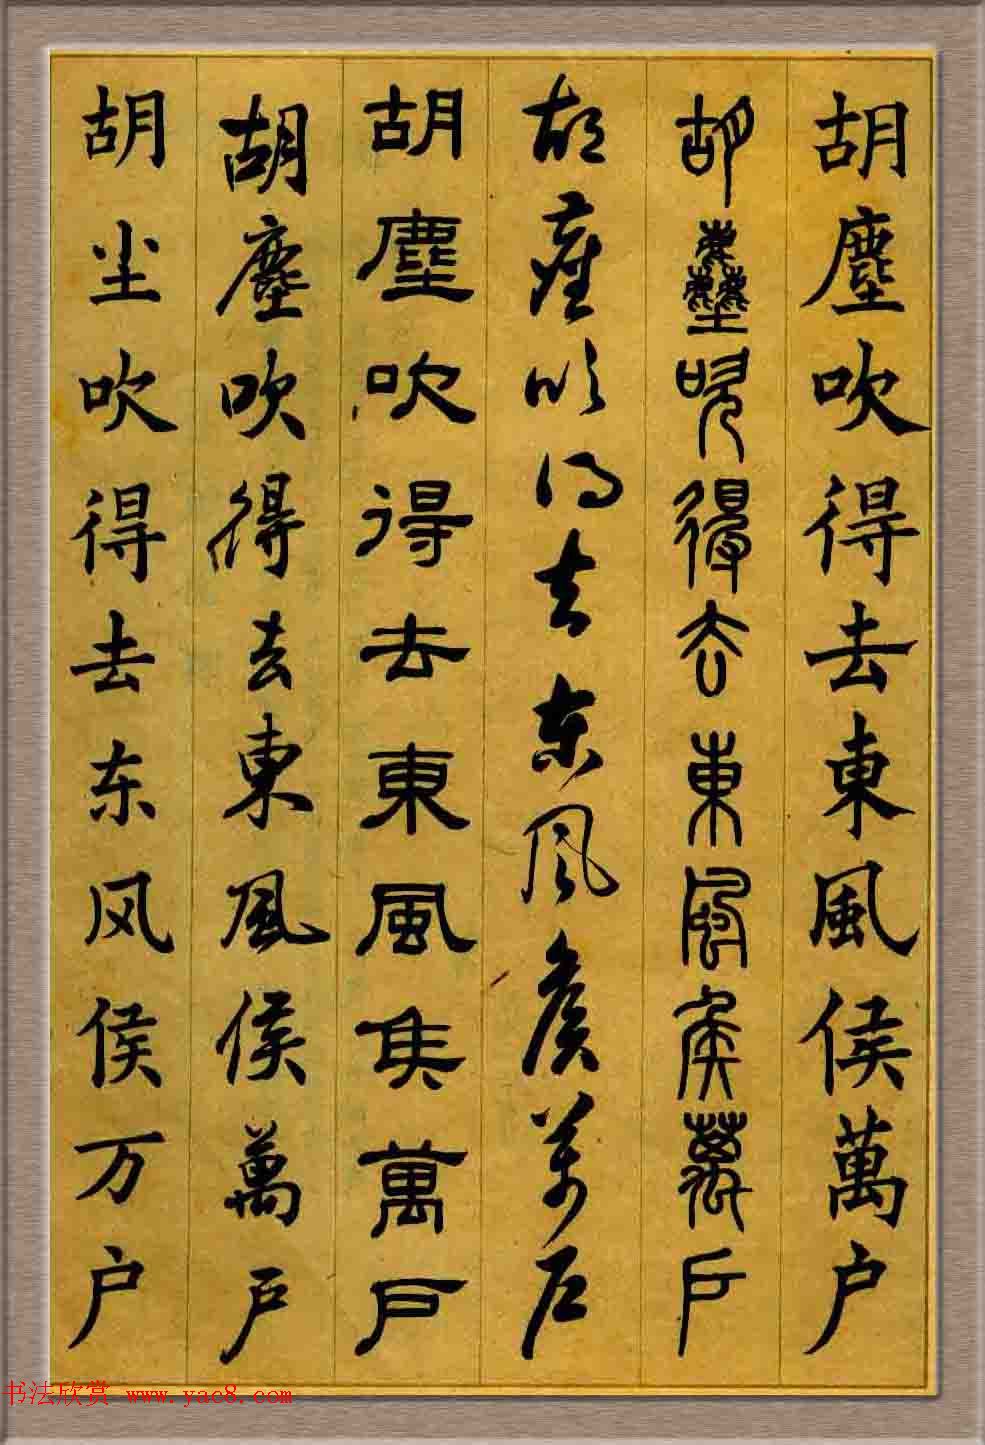 胡塵吹得去東風侯萬户
胡塵吹得去東風侯萬戶
胡塵吹得去东風侯萬户
胡塵吹得去東風侯萬戶
胡塵吹得去東風侯萬户
胡尘吹得去东风侯万户
书法欣赏 www.yac8.com